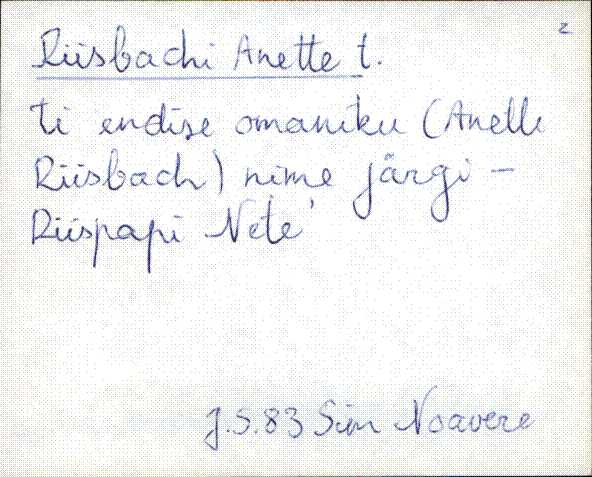 2
Riisbachi Anette t.
ti endise omaniku (Anette
Riisbach) nime järgi -
Riispapi Nete'
J.S.83 Sim Noavere